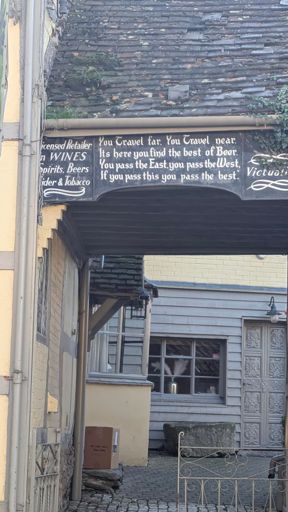 Licensed Retailer
in WINES
Spirits, Beers
Cider & Tobacco
You Travel far, You Travel near,
Its here you find the best of Beer.
You pass the East, you pass the West,
If you pass this you pass the best.